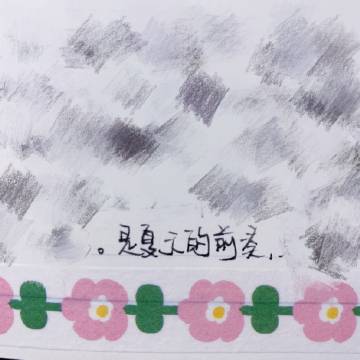 。是夏天的前奏,..